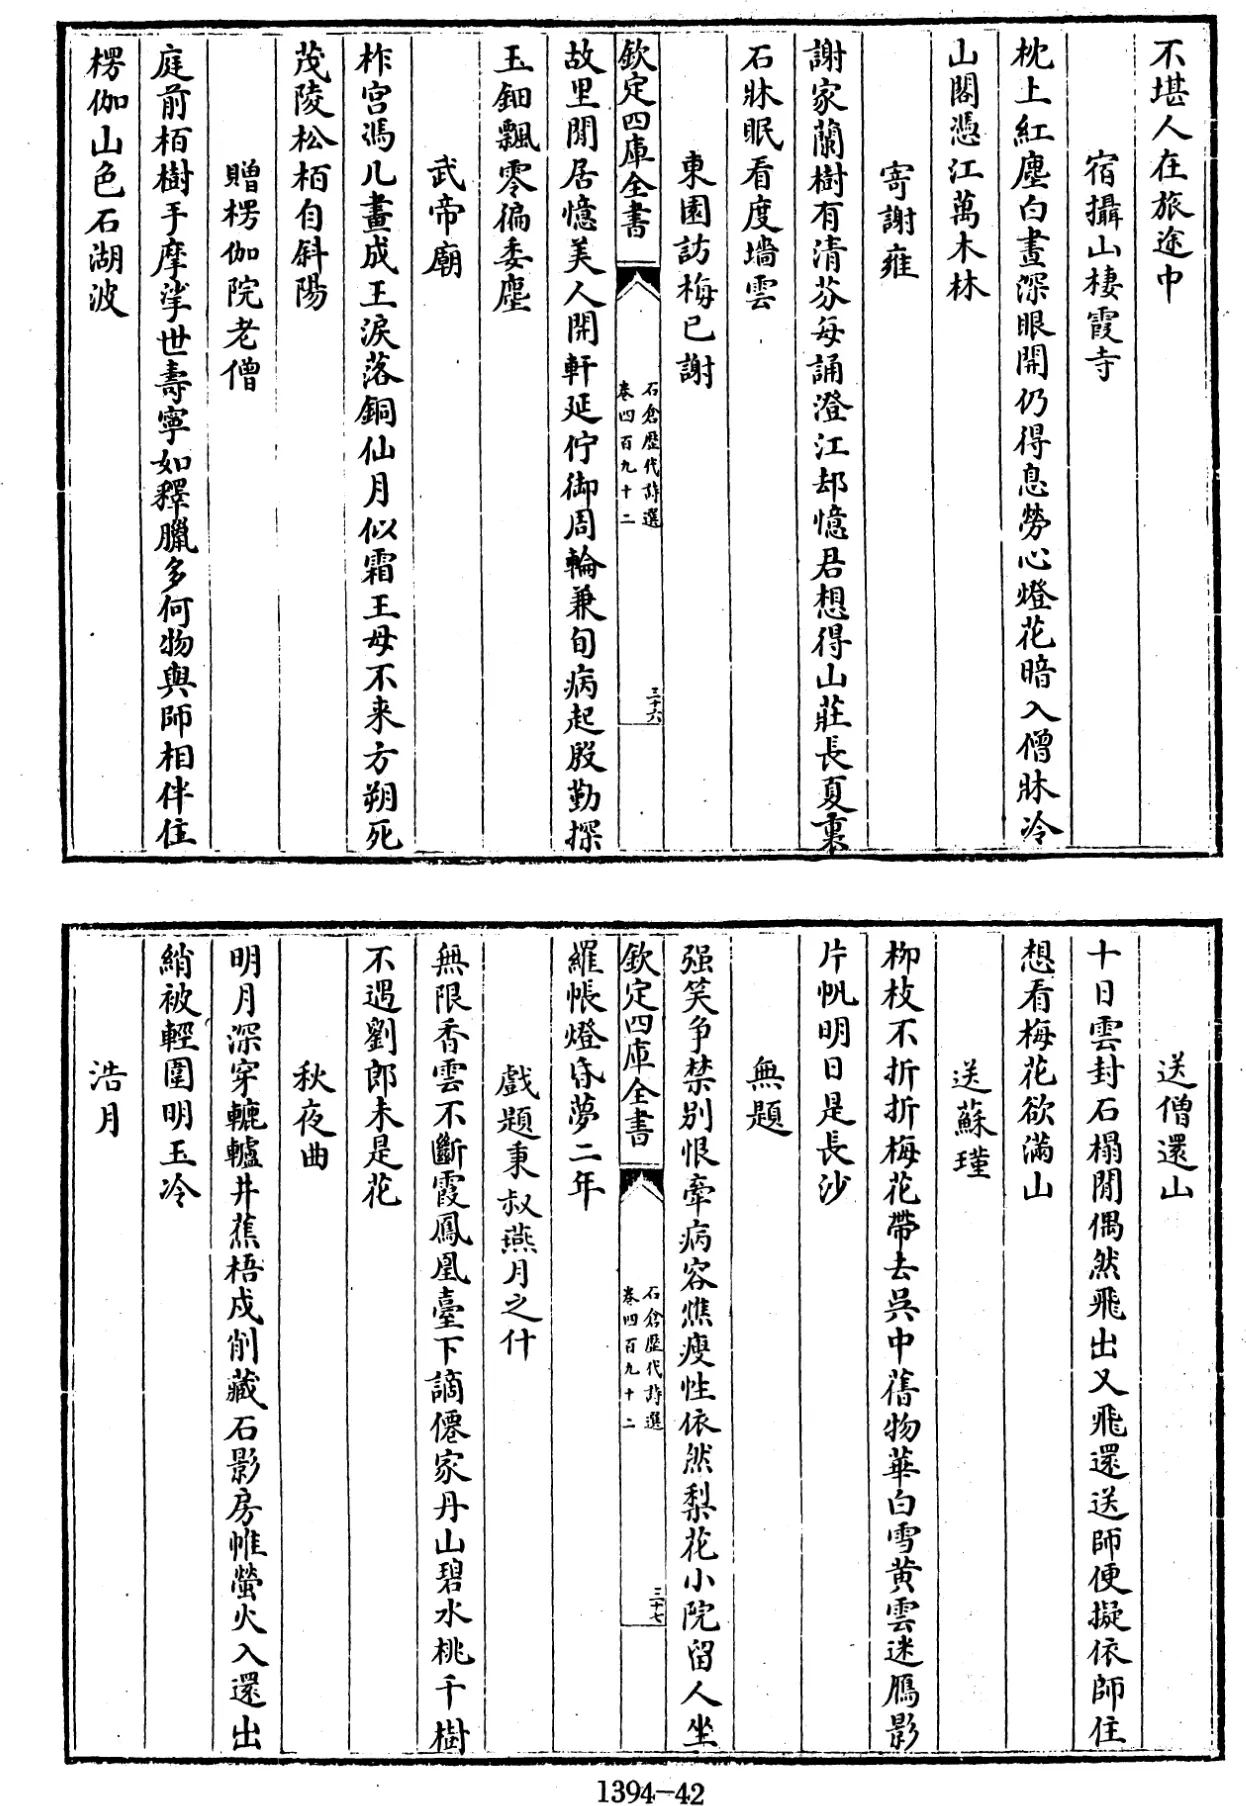 不堪人在旅途中
宿攝山棲霞寺
枕上紅塵白晝深眼開仍得息勞心燈花暗入僧牀冷
山閣憑江萬木林
寄謝雍
謝家蘭樹有清芬每誦澄江却憶君想得山莊長夏裏
石牀眠看度墻雲
東園訪梅已謝
欽定四庫全書
石倉歷代詩選
卷四百九十二
三十六
故里閒居憶美人開軒延佇御周輪兼旬病起殷勤探
玉鈿飄零偏委塵
武帝廟
柞宮馮几畫成王淚落銅仙月似霜王母不来方朔死
茂陵松栢自斜陽
贈楞伽院老僧
庭前栢樹手摩挲世壽寧如釋臘多何物與師相伴住
楞伽山色石湖波
送僧還山
十日雲封石榻閒偶然飛出又飛還送師便擬依師住
想看梅花欲滿山
送蘇瑾
柳枝不折折梅花帶去吳中舊物華白雪黄雲迷鴈影
片帆明日是長沙
無題
强笑争禁别恨牽病容憔瘦性依然梨花小院留人坐
欽定四庫全書
石倉歷代詩選
卷四百九十二
三十七
羅帳燈昏夢二年
戲題秉叔燕月之什
無限香雲不斷霞鳳凰臺下謫僊家丹山碧水桃千樹
不遇劉郎未是花
秋夜曲
明月深穿轆轤井蕉梧戍削藏石影房帷螢火入還出
綃被輕圍明玉冷
浩月
1394-42